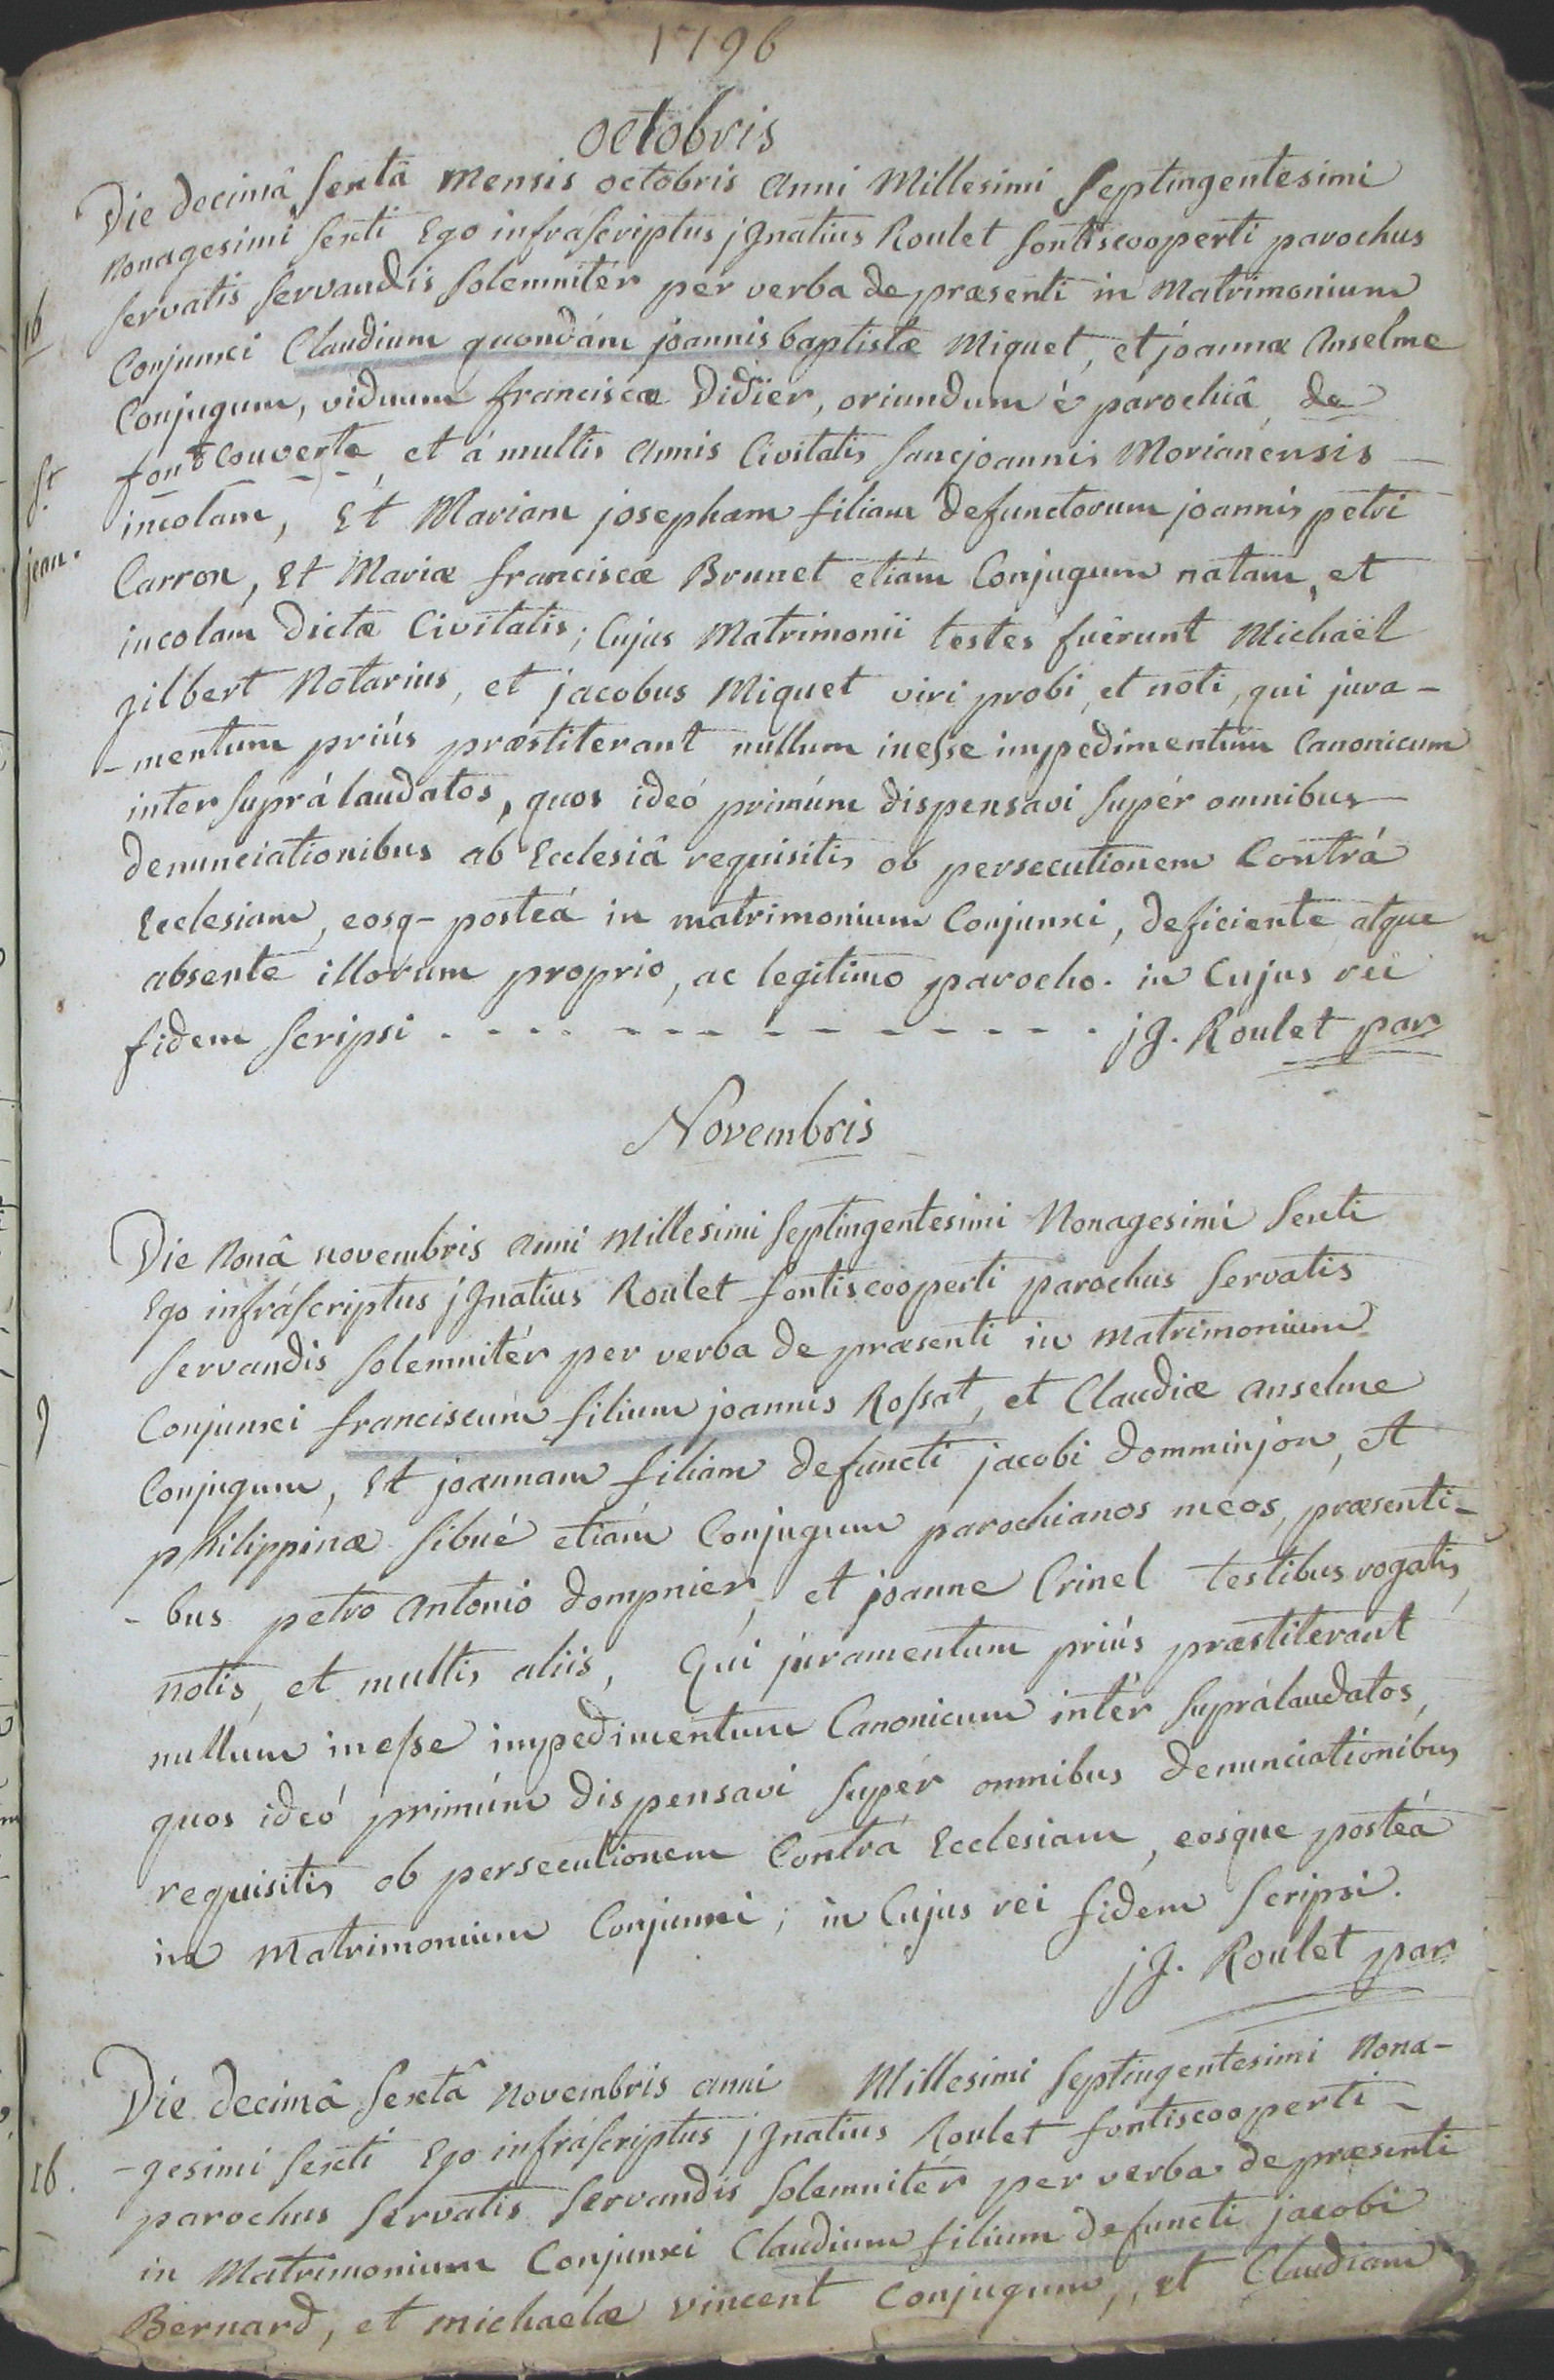 1796
octobris
Die decimâ Sextâ mensis octobris anni Millesimi Septingentesimi
nonagesimi Sexti Ego infráscriptus jgnatius Roulet fontiscooperti parochus
16
Servatis Servandis Solemnitér per verba de præsenti in Matrimonium
Conjunxi Claudium quondám joannis baptistæ Miquet, et joannæ Anselme
Conjugum, viduum franciscæ Didïer, oriundum é parochiâ de
St
jean.
font Couverte et á multis annis Civitatis Sancjoannis Morianensis
incolam, Et Mariam josepham filiam defunctorum joannis petri
Carron, Et Mariæ franciscæ Brunet etiám Conjugum natam, et
incolam dictæ Civitatis; Cujus Matrimonii testes fuêrunt Michaël
gilbert Notarius, et jacobus Miquet viri probi, et noti, qui jura-
-mentum priús præstiterant nullum inesse impedimentum Canonicum
inter Suprá laudatos, quos ideó primúm dispensavi Supér omnibus
denunciationibus ab Ecclesiâ requisitis ob persecutionem Contrá
Ecclesiam, eosq- posteá in matrimonium Conjunxi, deficiente atque
absente illorum proprio, ac legitimo parocho. in Cujus rei
fidem Scripsi - - - - - - - - - - - - jg. Roulet par
Novembris
Die Nonâ novembris anni Millesimi Septingentesimi Nonagesimi Sexti
Ego infráscriptus jgnatius Roulet fontiscooperti parochus Servatis
Servandis Solemnitér per verba de præsenti in Matrimonium
9
Conjunxi franciscúm filium joannis Rossat, et Claudiæ anselme
Conjugum, Et joannam filiam defuncti jacobi domminjon, et
philippinæ Sibué etiám Conjugum parochianos meos, præsenti-
-bus petro Antonio dompnier, et joanne Crinel testibus rogatis,
notis, et multis aliis, Qui juramentum priús præstiterant
nullúm inesse impedimentum Canonicum intér Suprálaudatos,
quos ideó primúm dispensavi Supér omnibus denunciationibus
requisitis ob persecutionem Contrá Ecclesiam, eosque posteá
in Matrimonium Conjunxi; in Cujus rei fidem Scripsi.
jg. Roulet par
Die decimâ Sextâ Novembris anni Millesimi Septingentesimi Nona-
-gesimi Sexti Ego infráscriptus jgnatius Roulet fontiscooperti-
16.
parochus Servatis Servandis Solemnitér per verba de præsenti
in Matrimonium Conjunxi Claudium filium defuncti jacobi
Bernard, et michaelæ vincent Conjugum, et Claudiam